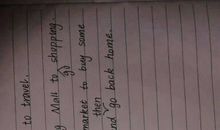 to travel.
g Mall to go shopping.
market to buy some
and then go back home.